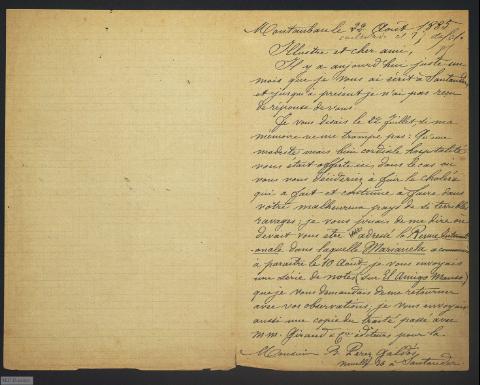 Montauban le 22 Août 1885
Illustre et cher ami,
Il y a aujourd'hui juste un
mois que je vous ai écrit à Santander,
et jusqu'à présent je n'ai pas reçu
de réponse de vous
Je vous disais le 22 juillet, si ma
mémoire ne me trompe pas: Qu'une
modeste mais bien cordiale hospitalité
vous était offerte ici, dans le cas où
vous vous décideriez à fuir le choléra
qui a fait et continue à faire dans
votre malheureux pays de si terribles
ravages; je vous priais de me dire où
devait vous être adressé la Revue Internati
onale dans laquelle Marianela a commencé
à paraître le 10 Août; je vous envoyais
une série de notes (sur El Amigo Manso)
que je vous demandais de me retourner
avec vos observations, je vous envoyais
aussi une copie du traité passé avec
M.M. Giraud & Cie éditeurs pour la
Monsieur B. Perez Galdós
à Santander